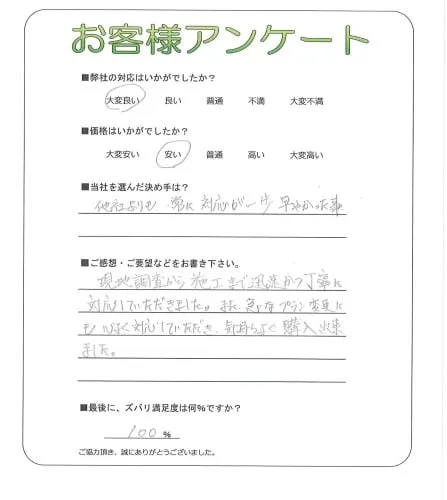 お客様アンケート
■弊社の対応はいかがでしたか?
大変良い 良い 普通 不満 大変不満
■価格はいかがでしたか?
大変安い 安い 普通 高い 大変高い
■当社を選んだ決め手は?
他社よりも 常に 対応が一歩 早かった事
■ご感想・ご要望などをお書き下さい。
現地調査から施工まで迅速かつ丁寧に
対応していただきました。また、急なプラン変更に
も 心よく対応していただき、気持ちよく購入出来
ました。
■最後に、ズバリ満足度は何%ですか?
100 %
ご協力頂き、誠にありがとうございました。